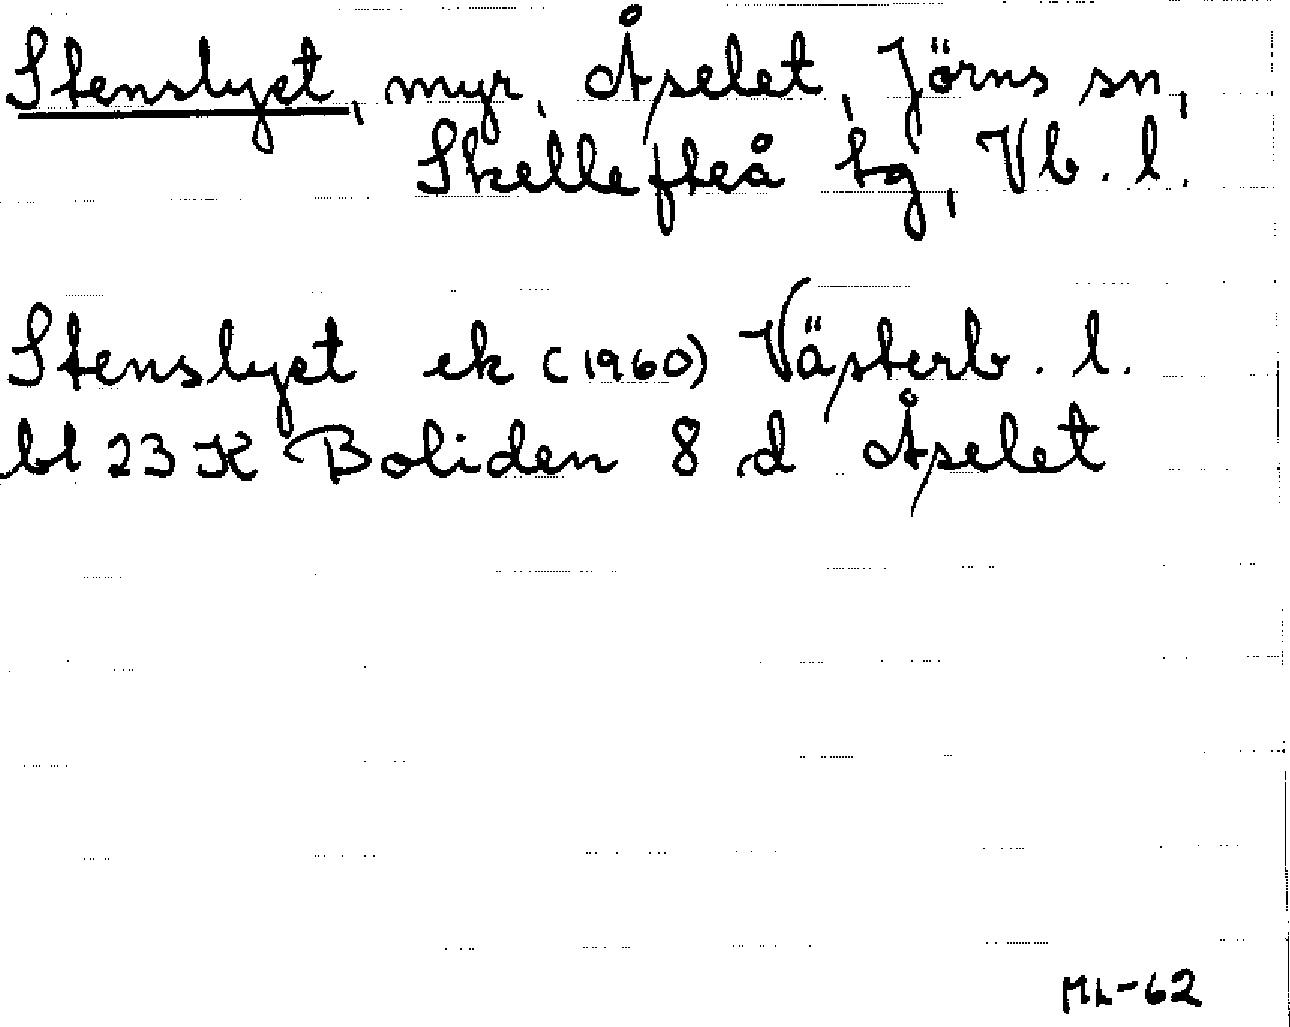 Stenslyet, myr, Åselet, Jörns sn,
Skellefteå tg, Vb. l.
Stenslyet ek (1960) Västerb. l.
bl 23 K Boliden 8 d Åselet
ML-62